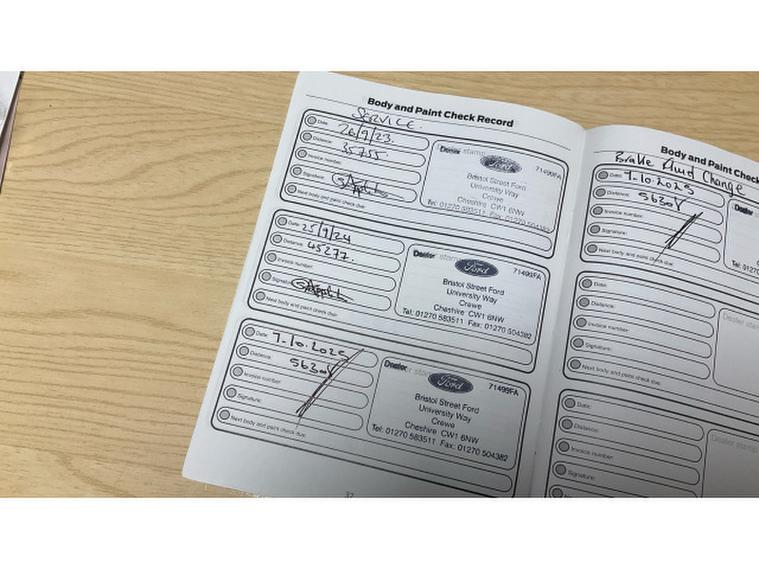 Body and Paint Check Record
SERVICE.
Date: 26/9/23.
Distance: 35755.
Invoice number:
Signature:
Next body and paint check due:
Dealer stamp
Ford
71499FA
Bristol Street Ford
University Way
Crewe
Cheshire CW1 6NW
Tel: 01270 583511 Fax: 01270 504382
Date: 25/9/24
Distance: 45277.
Invoice number:
Signature:
Next body and paint check due:
Dealer stamp
Ford
71499FA
Bristol Street Ford
University Way
Crewe
Cheshire CW1 6NW
Tel: 01270 583511 Fax: 01270 504382
Date: 7.10.2025
Distance:
Invoice number:
Signature:
Next body and paint check due:
Dealer stamp
Ford
71499FA
Bristol Street Ford
University Way
Crewe
Cheshire CW1 6NW
Tel: 01270 583511 Fax: 01270 504382
37
Body and Paint Check
Brake Fluid Change
Date: 7.10.2025
Distance:
Invoice number:
Signature:
Next body and paint check due:
Dealer
Tel: 0127
Date:
Distance:
Invoice number:
Signature:
Next body and paint check due:
Dealer stamp
Date:
Distance:
Invoice number:
Signature:
Dealer stamp